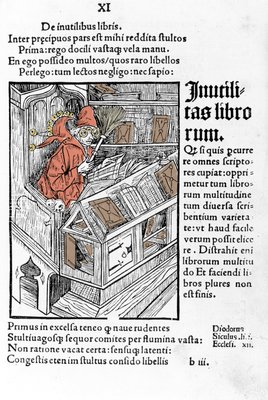 XI
De inutilibus libris.
Inter pręcipuos pars est mihi reddita stultos
Prima: rego docili vastaqȝ vela manu.
En ego possideo multos/quos raro libellos
Perlego: tum lectos negligo: nec sapio:
Inutili⸗
tas libro
rum.
Qȝ si quis ꝑcurre
re omnes scripto⸗
res cupiat: oppri⸗
metur tum libro⸗
rum multitudine
tum diuersa scri⸗
bentium varieta
te: vt haud facile
verum possit elice
re. Distrahit eni
librorum multitu
do Et faciendi li
bros plures non
est finis.
Primus in excelsa teneo ꝙ naue rudentes
Stultiuagosqȝ sequor comites per flumina vasta:
Non ratione vacat certa: sensuqȝ latenti:
Congestis etenim stultus confido libellis
Diodorus
Siculus li. i.
Ecclesi. xii.
b iii.